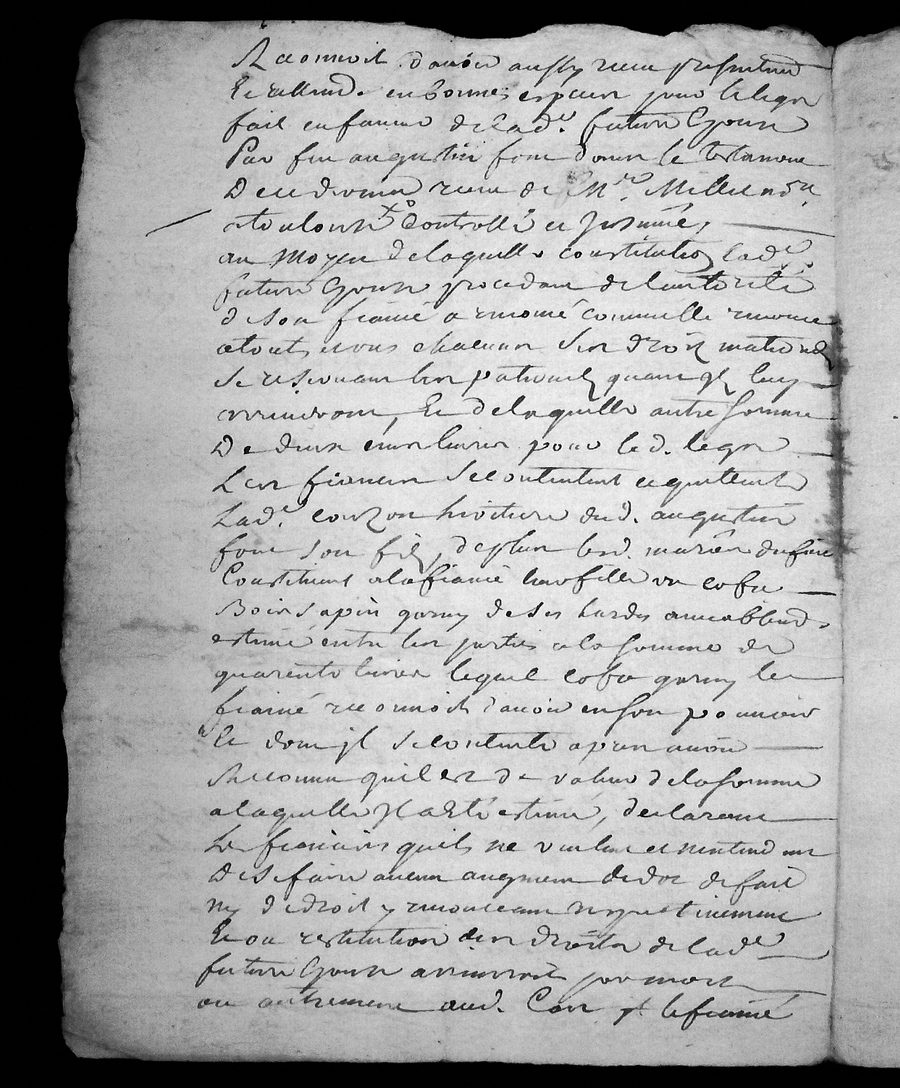 Reconnoit davoir aussy reçeu presentem
et rettiré en bonnes espesses pour le legat
fait enfaveur de lad.e future Epouse
Par feu augustin four dans le testament
De ce dernier reçeu de M.re Millet no.re
atoulouse controllé et Jnsinué,
au moyen de laquelle constitution lad.e
future Epouse procedant de lauthorité
de son fiancé a renoncé comme elle renonce
atouts et uns chacuns ses droits maternels
se reservant les paternels quand Jls luy
arriveront, Et de laquelle autre somme
De deux livres pour led. legat
Les fiances se contentent et quittent
Lad.e heritiere dud. augustin
four son fils, deplus lesd. mariés dufaire
Constituent alafiancé leur fille un cofre
Bois sapin garny de ses hardes
estimé entre les parties ala somme de
quarente livres lequel cofre garny le
fiancé reconnoit davoir enson pouvoir
Et dont jl secontente apres avoir
Reconnu quil est de valeur delasomme
alaquelle Jl a eté estimé, declarant
Les fiancés quils ne veulent et nentendent
De se faire aucun augment dedot de fait
ny dedroit y renonceant respectivement
Et ou restitution des droits de lad.e
future Epouse arriveroit par mort
ou autrement aud. Cas Jl. le fiancé